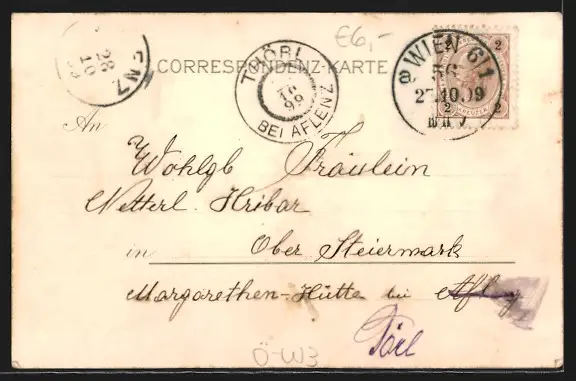 €6,-
CORRESPONDENZ-KARTE
ENZ
28
10
THÖRL
10
99
BEI AFLENZ
WIEN 6/1
27.10.99
2 2
2 2
An
Wohlgb Fräulein
Netterl. Hribar
in Ober Steiermark
Margarethen-Hütte bei
Törl
Ö-W3